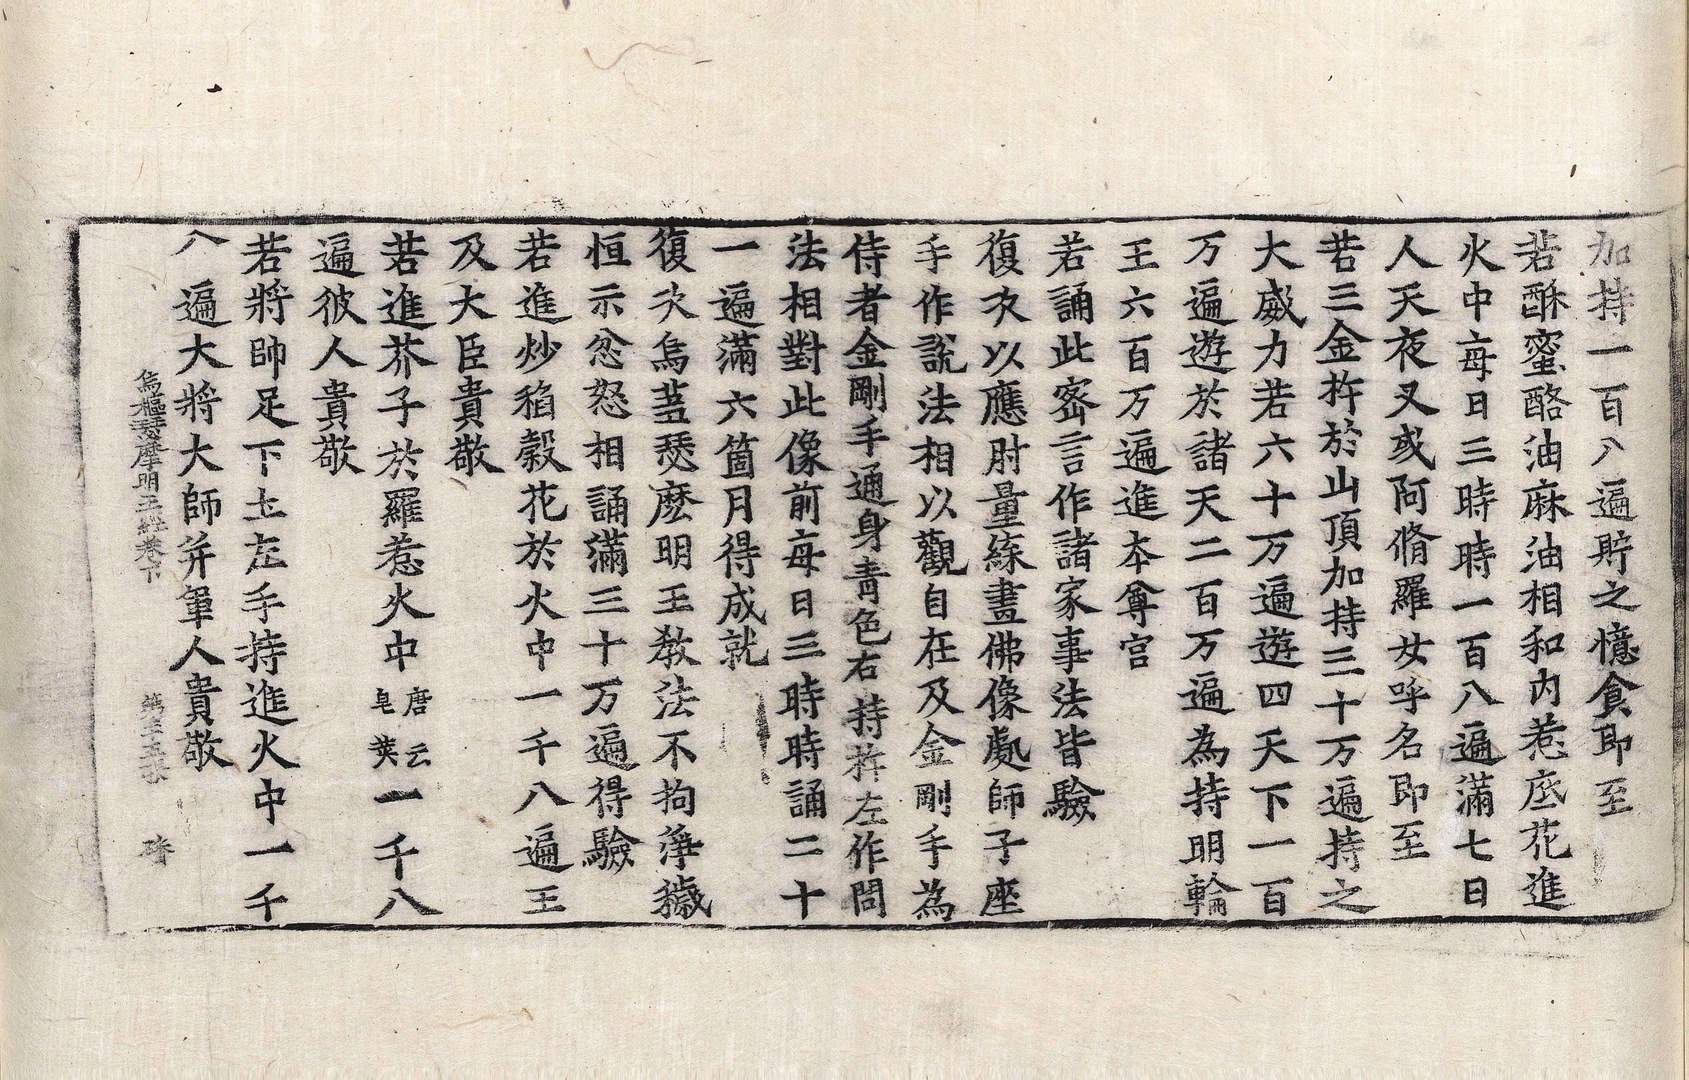 加持一百八遍貯之憶食即至
若酥蜜酪油麻油相和内惹底花進
火中每日三時時一百八遍滿七日
人天夜叉或阿脩羅女呼名即至
若三金杵於山頂加持三十万遍持之
大威力若六十万遍遊四天下一百
万遍遊於諸天二百万遍為持明輪
王六百万遍進本尊宫
若誦此密言作諸家事法皆驗
復次以應肘量綵畫佛像處師子座
手作說法相以觀自在及金剛手為
侍者金剛手通身青色右持杵左作問
法相對此像前每日三時時誦二十
一遍滿六箇月得成就
復次烏蒭瑟麽明王教法不拘淨穢
恒示忿怒相誦滿三十万遍得驗
若進炒稻穀花於火中一千八遍王
及大臣貴敬
若進芥子於羅惹火中唐云皂莢一千八
遍彼人貴敬
若將師足下土左手持進火中一千
八遍大將大師并軍人貴敬
烏樞瑟摩明王經卷下